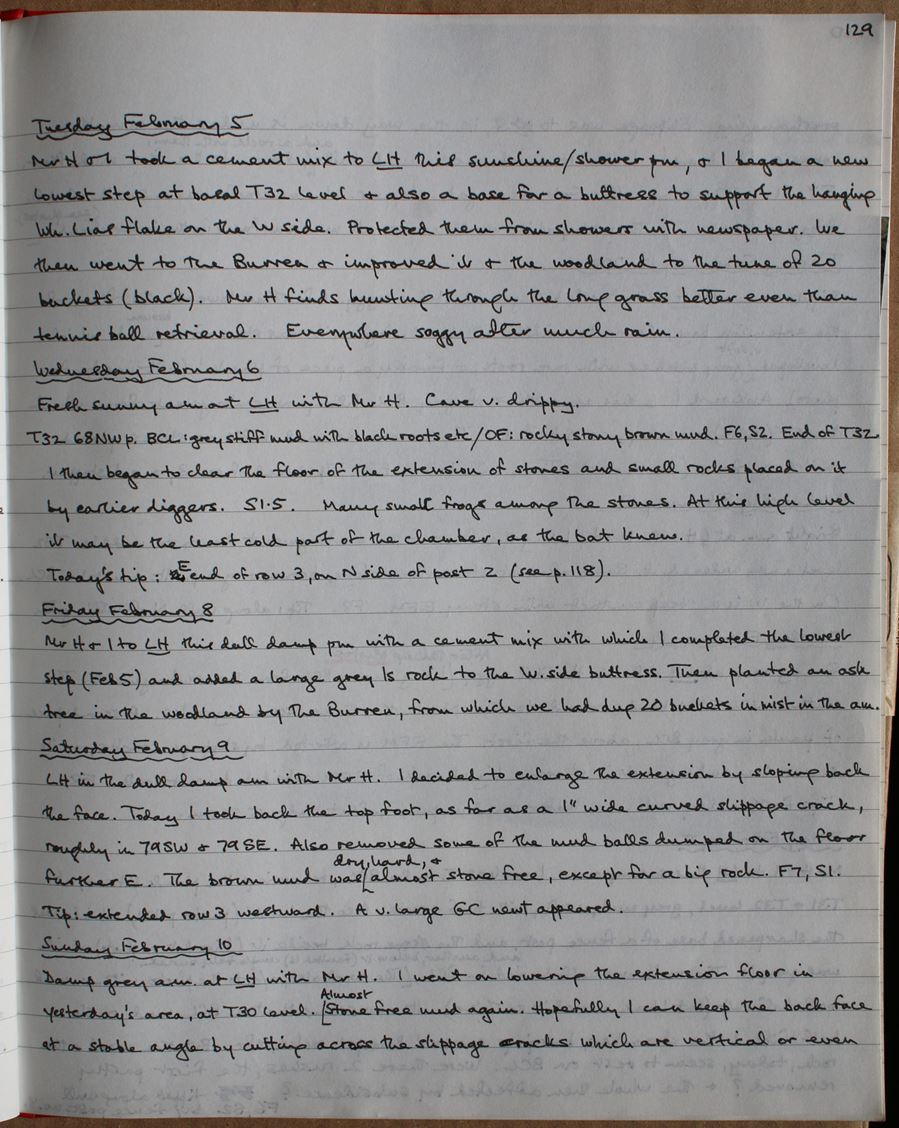 129
Tuesday February 5
Mr H & I took a cement mix to LH this sunshine/shower pm, & I began a new
lowest step at basal T32 level & also a base for a buttress to support the hanging
Wh. Lias flake on the W side. Protected them from showers with newspaper. We
then went to The Burren & improved it & the woodland to the tune of 20
buckets (black). Mr H finds hunting through the long grass better even than
tennis ball retrieval. Everywhere soggy after much rain.
Wednesday February 6
Fresh sunny am at LH with Mr H. Cave v. drippy.
T32 68NWp. BCL: grey stiff mud with black roots etc/OF: rocky stony brown mud. F6, S2. End of T32.
I then began to clear the floor of the extension of stones and small rocks placed on it
by earlier diggers. S1·5. Many small frogs among the stones. At this high level
it may be the least cold part of the chamber, as the bat knew.
Today's tip: E end of row 3, on N side of post 2 (see p.118).
Friday February 8
Mr H & I to LH this dull damp pm with a cement mix with which I completed the lowest
step (Feb 5) and added a large grey ls rock to the W. side buttress. Then planted an ash
tree in the woodland by The Burren, from which we had dug 20 buckets in mist in the am.
Saturday February 9
LH in the dull damp am with Mr H. I decided to enlarge the extension by sloping back
the face. Today I took back the top foot, as far as a 1" wide curved slippage crack,
roughly in 79SW & 79SE. Also removed some of the mud balls dumped on the floor
further E. The brown mud was dry, hard, & almost stone free, except for a big rock. F7, S1.
Tip: extended row 3 westward. A v. large GC newt appeared.
Sunday February 10
Damp grey am. at LH with Mr H. I went on lowering the extension floor in
yesterday's area, at T30 level. Almost stone free mud again. Hopefully I can keep the back face
at a stable angle by cutting across the slippage cracks which are vertical or even